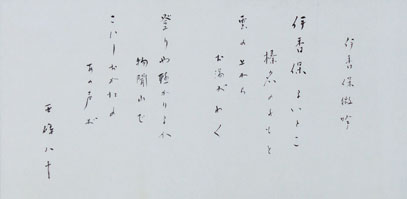 伊香保微吟
伊香保よいとこ
榛名のふもと
雲の上から
お湯がわく
登りゃ聴かりょか
物聞山で
こいしおかたの
あの声が
西條八十